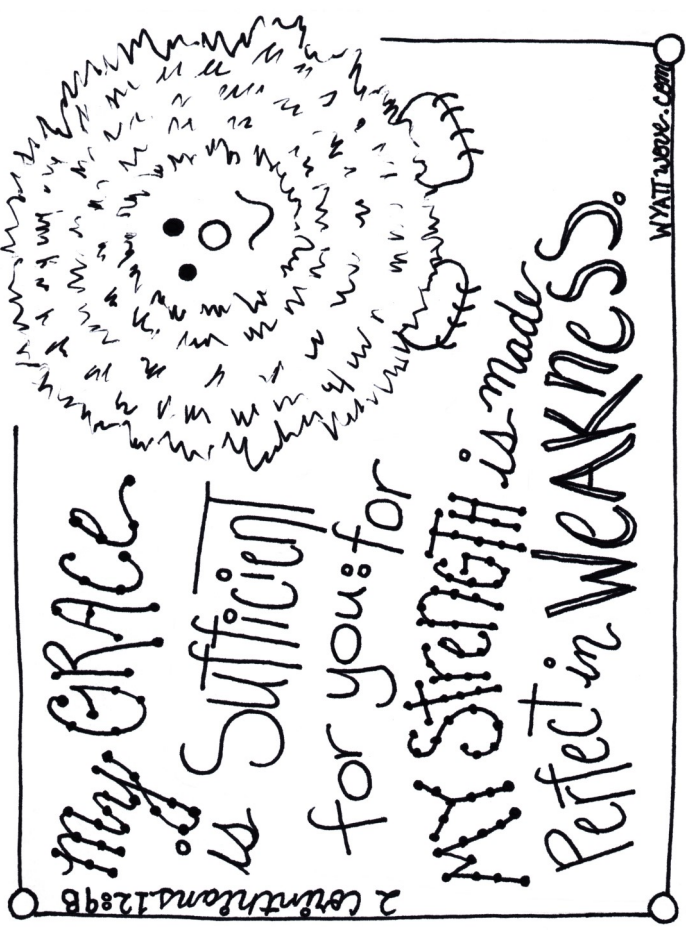 My GRACe
is SufficienT
for you: for
MY STrenGTH is made
Perfect in WeAKness.
2 Corinthians 12:9B
WYATTwove.com